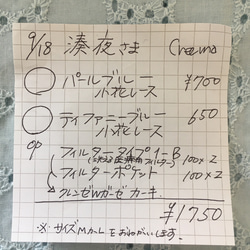 9/18 湊夜さま Creema
パールブルー
小花レース ¥700
ティファニーブルー
小花レース 650
op フィルタータイプ1-B 100×2
フィルターポケット 100×2
クレンゼWガーゼ カーキ
¥1750
※サイズM〜Lをおねがいします。